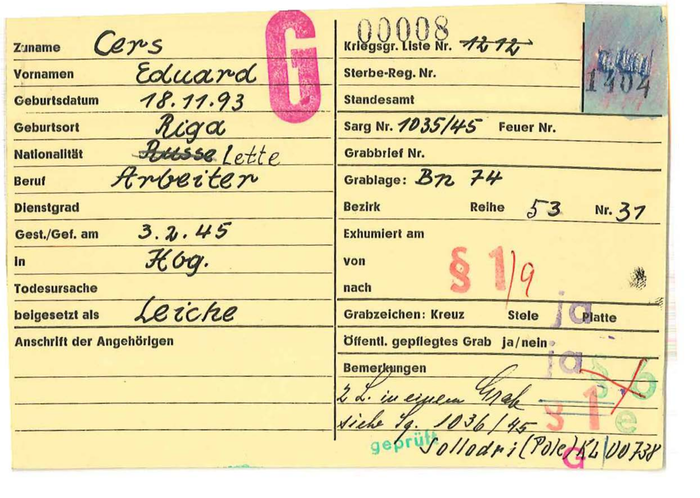 G
00008
Zuname Cers
Kriegsgr. Liste Nr. 1212
1404
Vornamen Eduard
Sterbe-Reg. Nr.
Geburtsdatum 18.11.93
Standesamt
Geburtsort Riga
Sarg Nr. 1035/45 Feuer Nr.
Nationalität Russe Lette
Grabbrief Nr.
Beruf Arbeiter
Grablage: Bn 74
Dienstgrad
Bezirk Reihe 53 Nr. 31
Gest./Gef. am 3.2.45
Exhumiert am
in Hbg.
von
§ 1/9
Todesursache
nach
beigesetzt als Leiche
Grabzeichen: Kreuz Stele Platte
ja
Anschrift der Angehörigen
Öffentl. gepflegtes Grab ja/nein
ja
Bemerkungen
2 L. in einem Grab
§ 1
e
siehe Sg. 1036/45
geprüft
(Pole) KL/00738
G